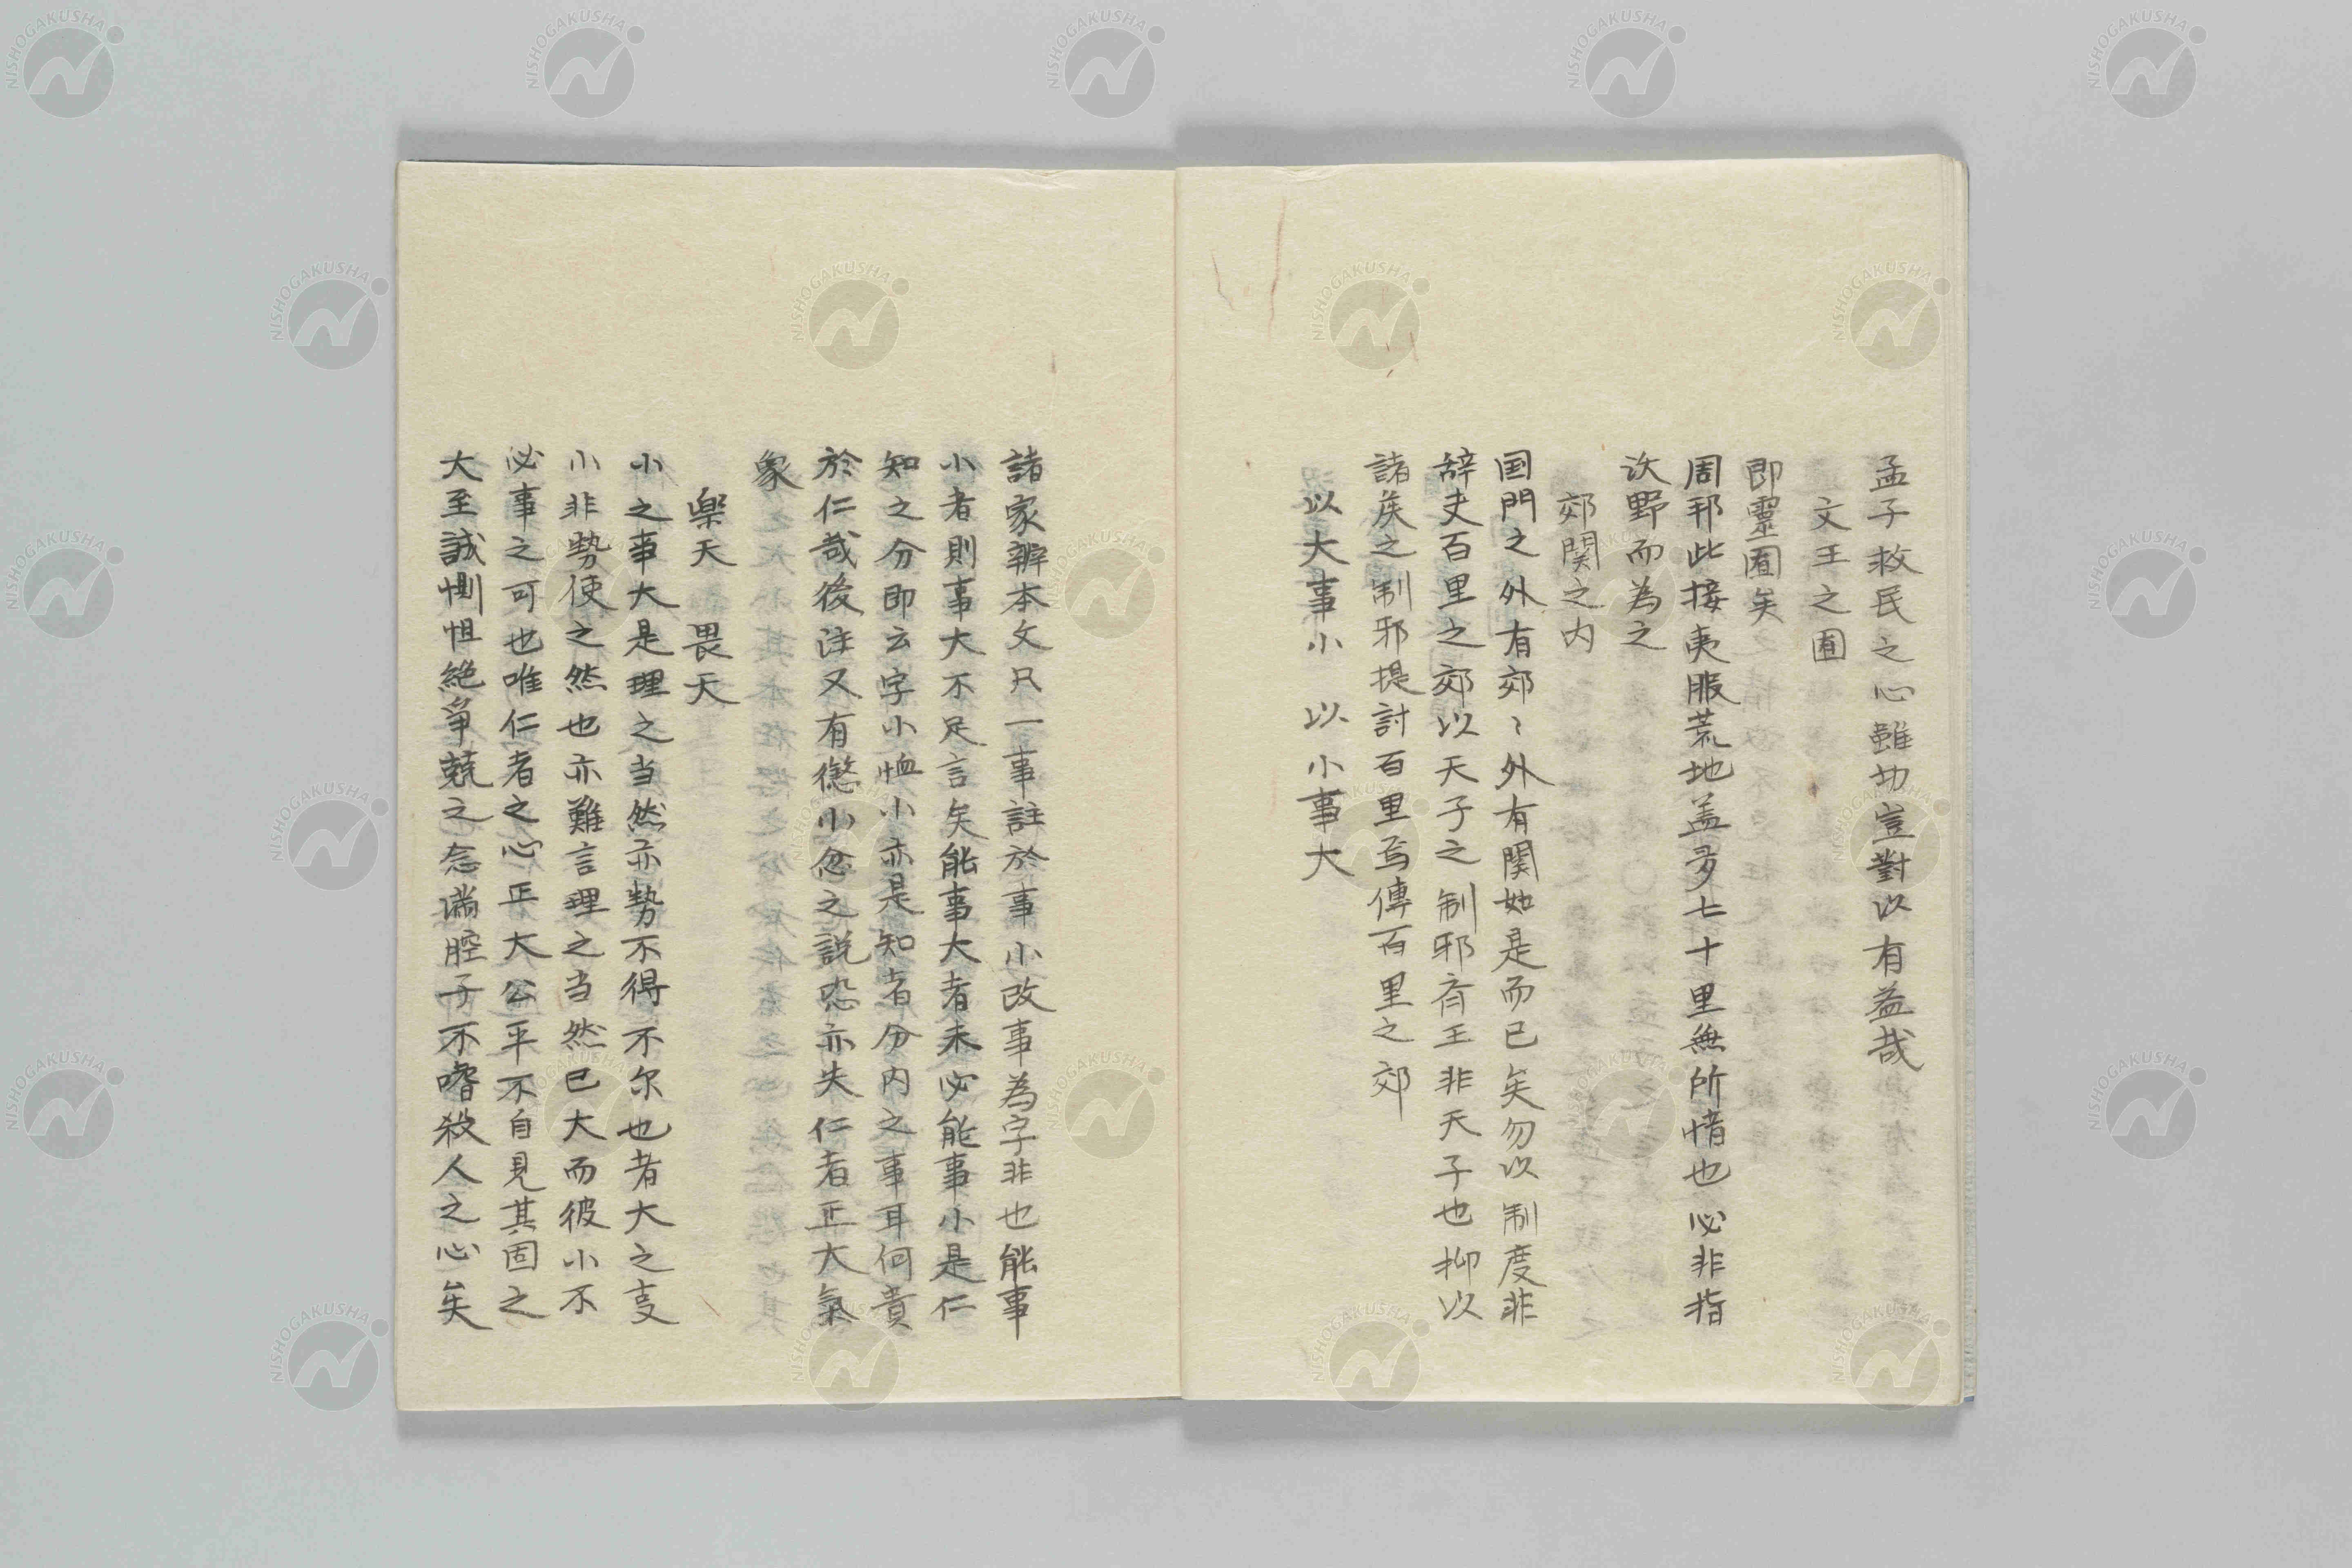 孟子救民之心雖切豈對以有益哉
文王之囿
即霊囿矣
周邦此接夷服荒地盖多七十里無所惜也必非指
沃野而為之
郊関之内
国門之外有郊〻外有関如是而已矣勿以制度非
辞丈百里之郊以天子之制邪斉王非天子也抑以
諸矦之制邪提討百里焉傳百里之郊
以大事小 以小事大
諸家辨本文只一事註於事小改事為字非也能事
小者則事大不足言矣能事大者未必能事小是仁
知之分即云字小恤小亦是知者分内之事耳何責
於仁哉後注又有懲小忿之説恐亦失仁者正大氣
象
楽天 畏天
小之事大是理之当然亦勢不得不尔也者大之事
小非勢使之然也亦難言理之当然已大而彼小不
必事之可也唯仁者之心正大公平不自見其固之
大至誠惻怛絶争競之念満腔子不嗜殺人之心矣
NISHOGAKUSHA